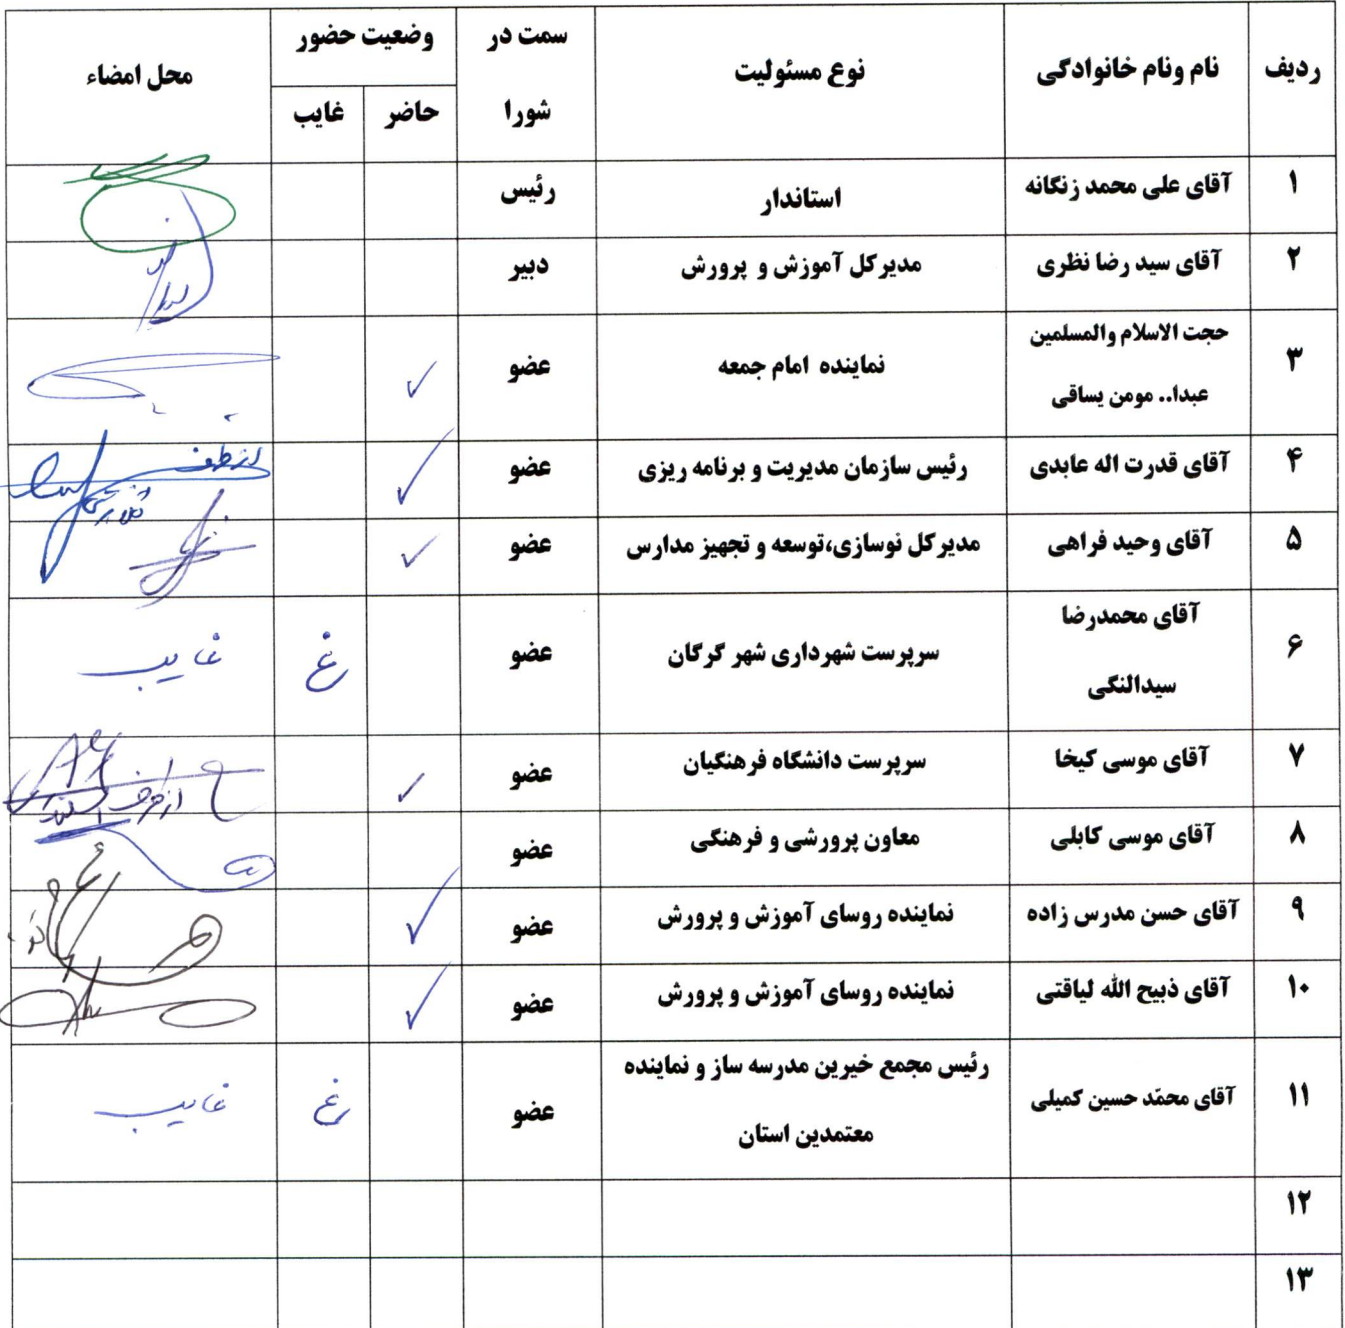 ردیف
نام ونام خانوادگی
نوع مسئولیت
سمت در
شورا
وضعیت حضور
حاضر
غایب
محل امضاء
۱
آقای علی محمد زنگانه
استاندار
رئیس
۲
آقای سید رضا نظری
مدیرکل آموزش و پرورش
دبیر
۳
حجت الاسلام والمسلمین
عبدا.. مومن یساقی
نماینده امام جمعه
عضو
✓
۴
آقای قدرت اله عابدی
رئیس سازمان مدیریت و برنامه ریزی
عضو
✓
از طرف
۵
آقای وحید فراهی
مدیرکل نوسازی،توسعه و تجهیز مدارس
عضو
✓
۶
آقای محمدرضا
سیدالنگی
سرپرست شهرداری شهر گرگان
عضو
غ
غایب
۷
آقای موسی کیخا
سرپرست دانشگاه فرهنگیان
عضو
✓
از طرف
۸
آقای موسی کابلی
معاون پرورشی و فرهنگی
عضو
۹
آقای حسن مدرس زاده
نماینده روسای آموزش و پرورش
عضو
✓
۱۰
آقای ذبیح الله لیاقتی
نماینده روسای آموزش و پرورش
عضو
✓
۱۱
آقای محمّد حسین کمیلی
رئیس مجمع خیرین مدرسه ساز و نماینده
معتمدین استان
عضو
غ
غایب
۱۲
۱۳